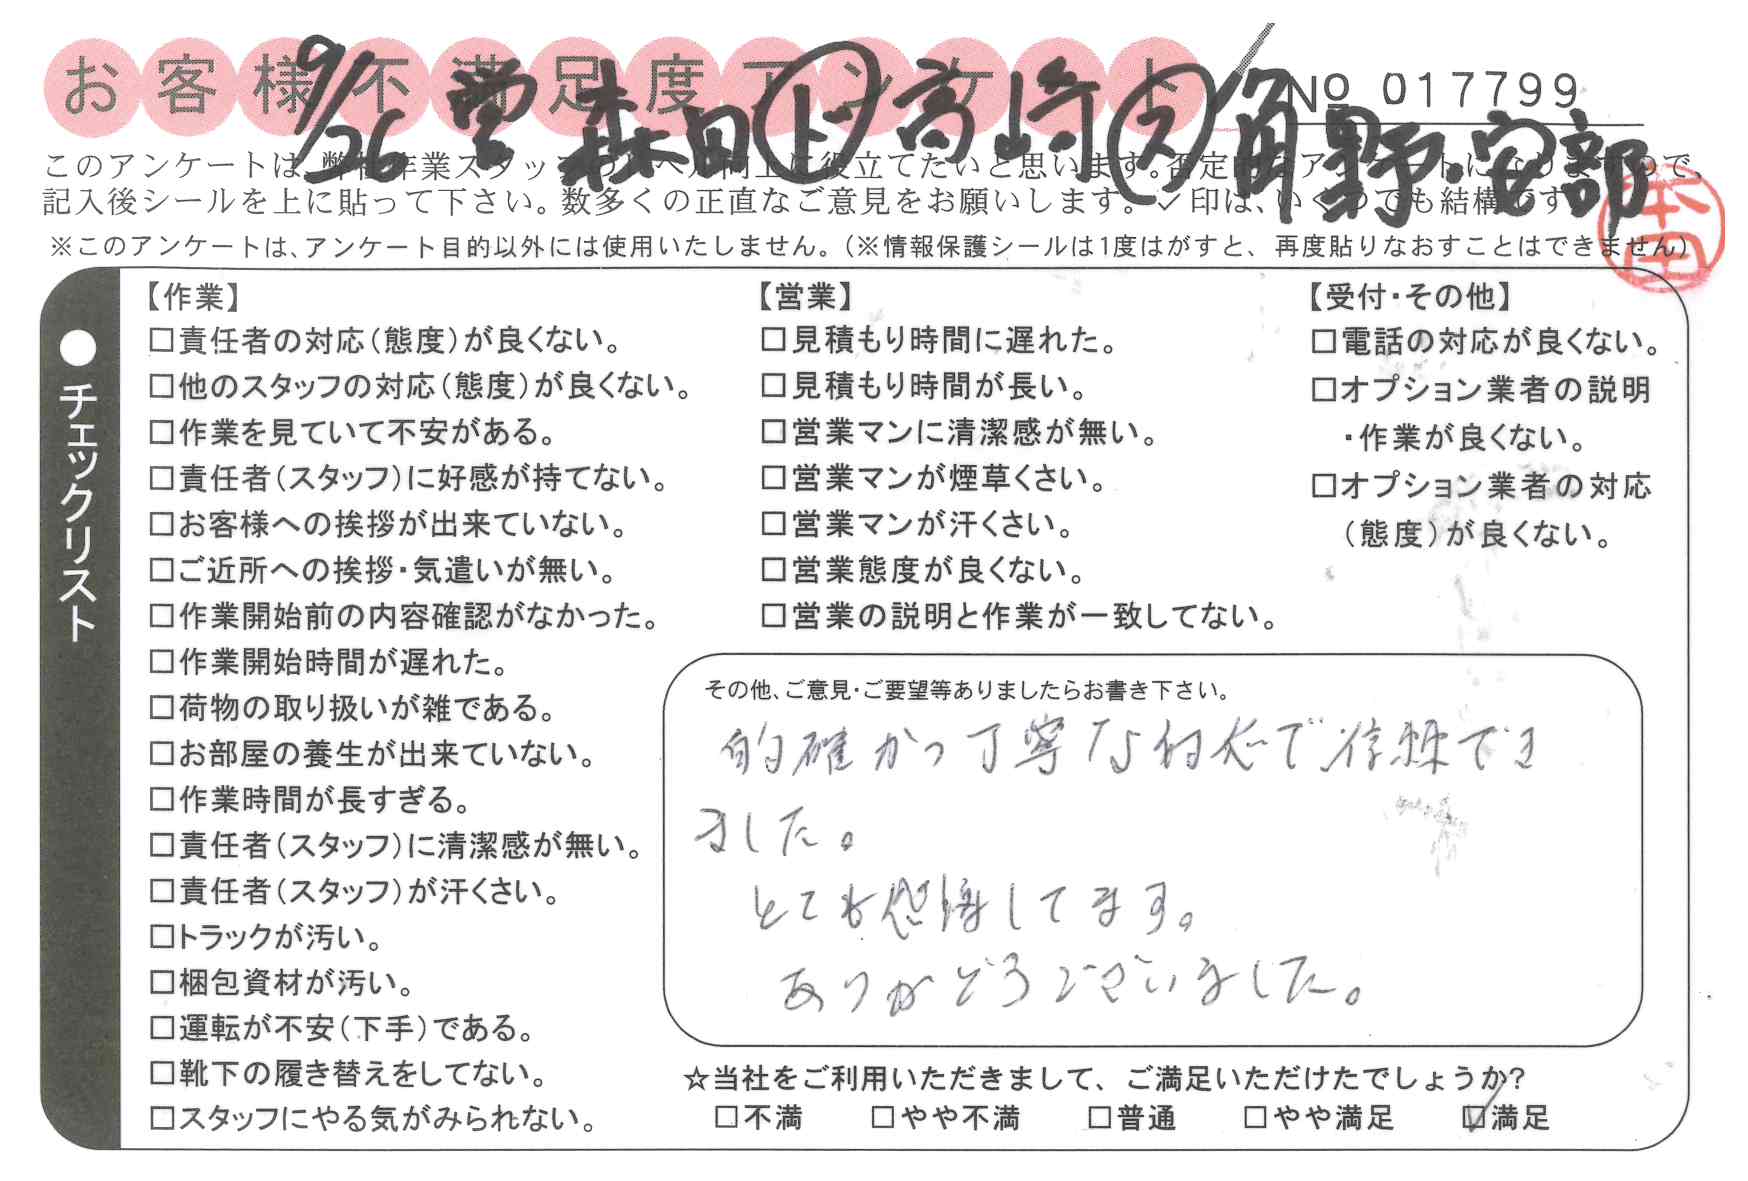 お客様不満足度アンケート
9/26 営 森田 ト 高崎 ス 角野・安部
No 017799
このアンケートは、弊社作業スタッフのレベル向上に役立てたいと思います。否定的なアンケートになりますので、
記入後シールを上に貼って下さい。数多くの正直なご意見をお願いします。✓印は、いくつでも結構です。
※このアンケートは、アンケート目的以外には使用いたしません。(※情報保護シールは1度はがすと、再度貼りなおすことはできません)
本田
●チェックリスト
【作業】
□責任者の対応(態度)が良くない。
□他のスタッフの対応(態度)が良くない。
□作業を見ていて不安がある。
□責任者(スタッフ)に好感が持てない。
□お客様への挨拶が出来ていない。
□ご近所への挨拶・気遣いが無い。
□作業開始前の内容確認がなかった。
□作業開始時間が遅れた。
□荷物の取り扱いが雑である。
□お部屋の養生が出来ていない。
□作業時間が長すぎる。
□責任者(スタッフ)に清潔感が無い。
□責任者(スタッフ)が汗くさい。
□トラックが汚い。
□梱包資材が汚い。
□運転が不安(下手)である。
□靴下の履き替えをしてない。
□スタッフにやる気がみられない。
【営業】
□見積もり時間に遅れた。
□見積もり時間が長い。
□営業マンに清潔感が無い。
□営業マンが煙草くさい。
□営業マンが汗くさい。
□営業態度が良くない。
□営業の説明と作業が一致してない。
【受付・その他】
□電話の対応が良くない。
□オプション業者の説明
・作業が良くない。
□オプション業者の対応
(態度)が良くない。
その他、ご意見・ご要望等ありましたらお書き下さい。
的確かつ丁寧な対応で信頼でき
ました。
とても感謝してます。
ありがとうございました。
☆当社をご利用いただきまして、ご満足いただけたでしょうか?
□不満 □やや不満 □普通 □やや満足 ☑満足